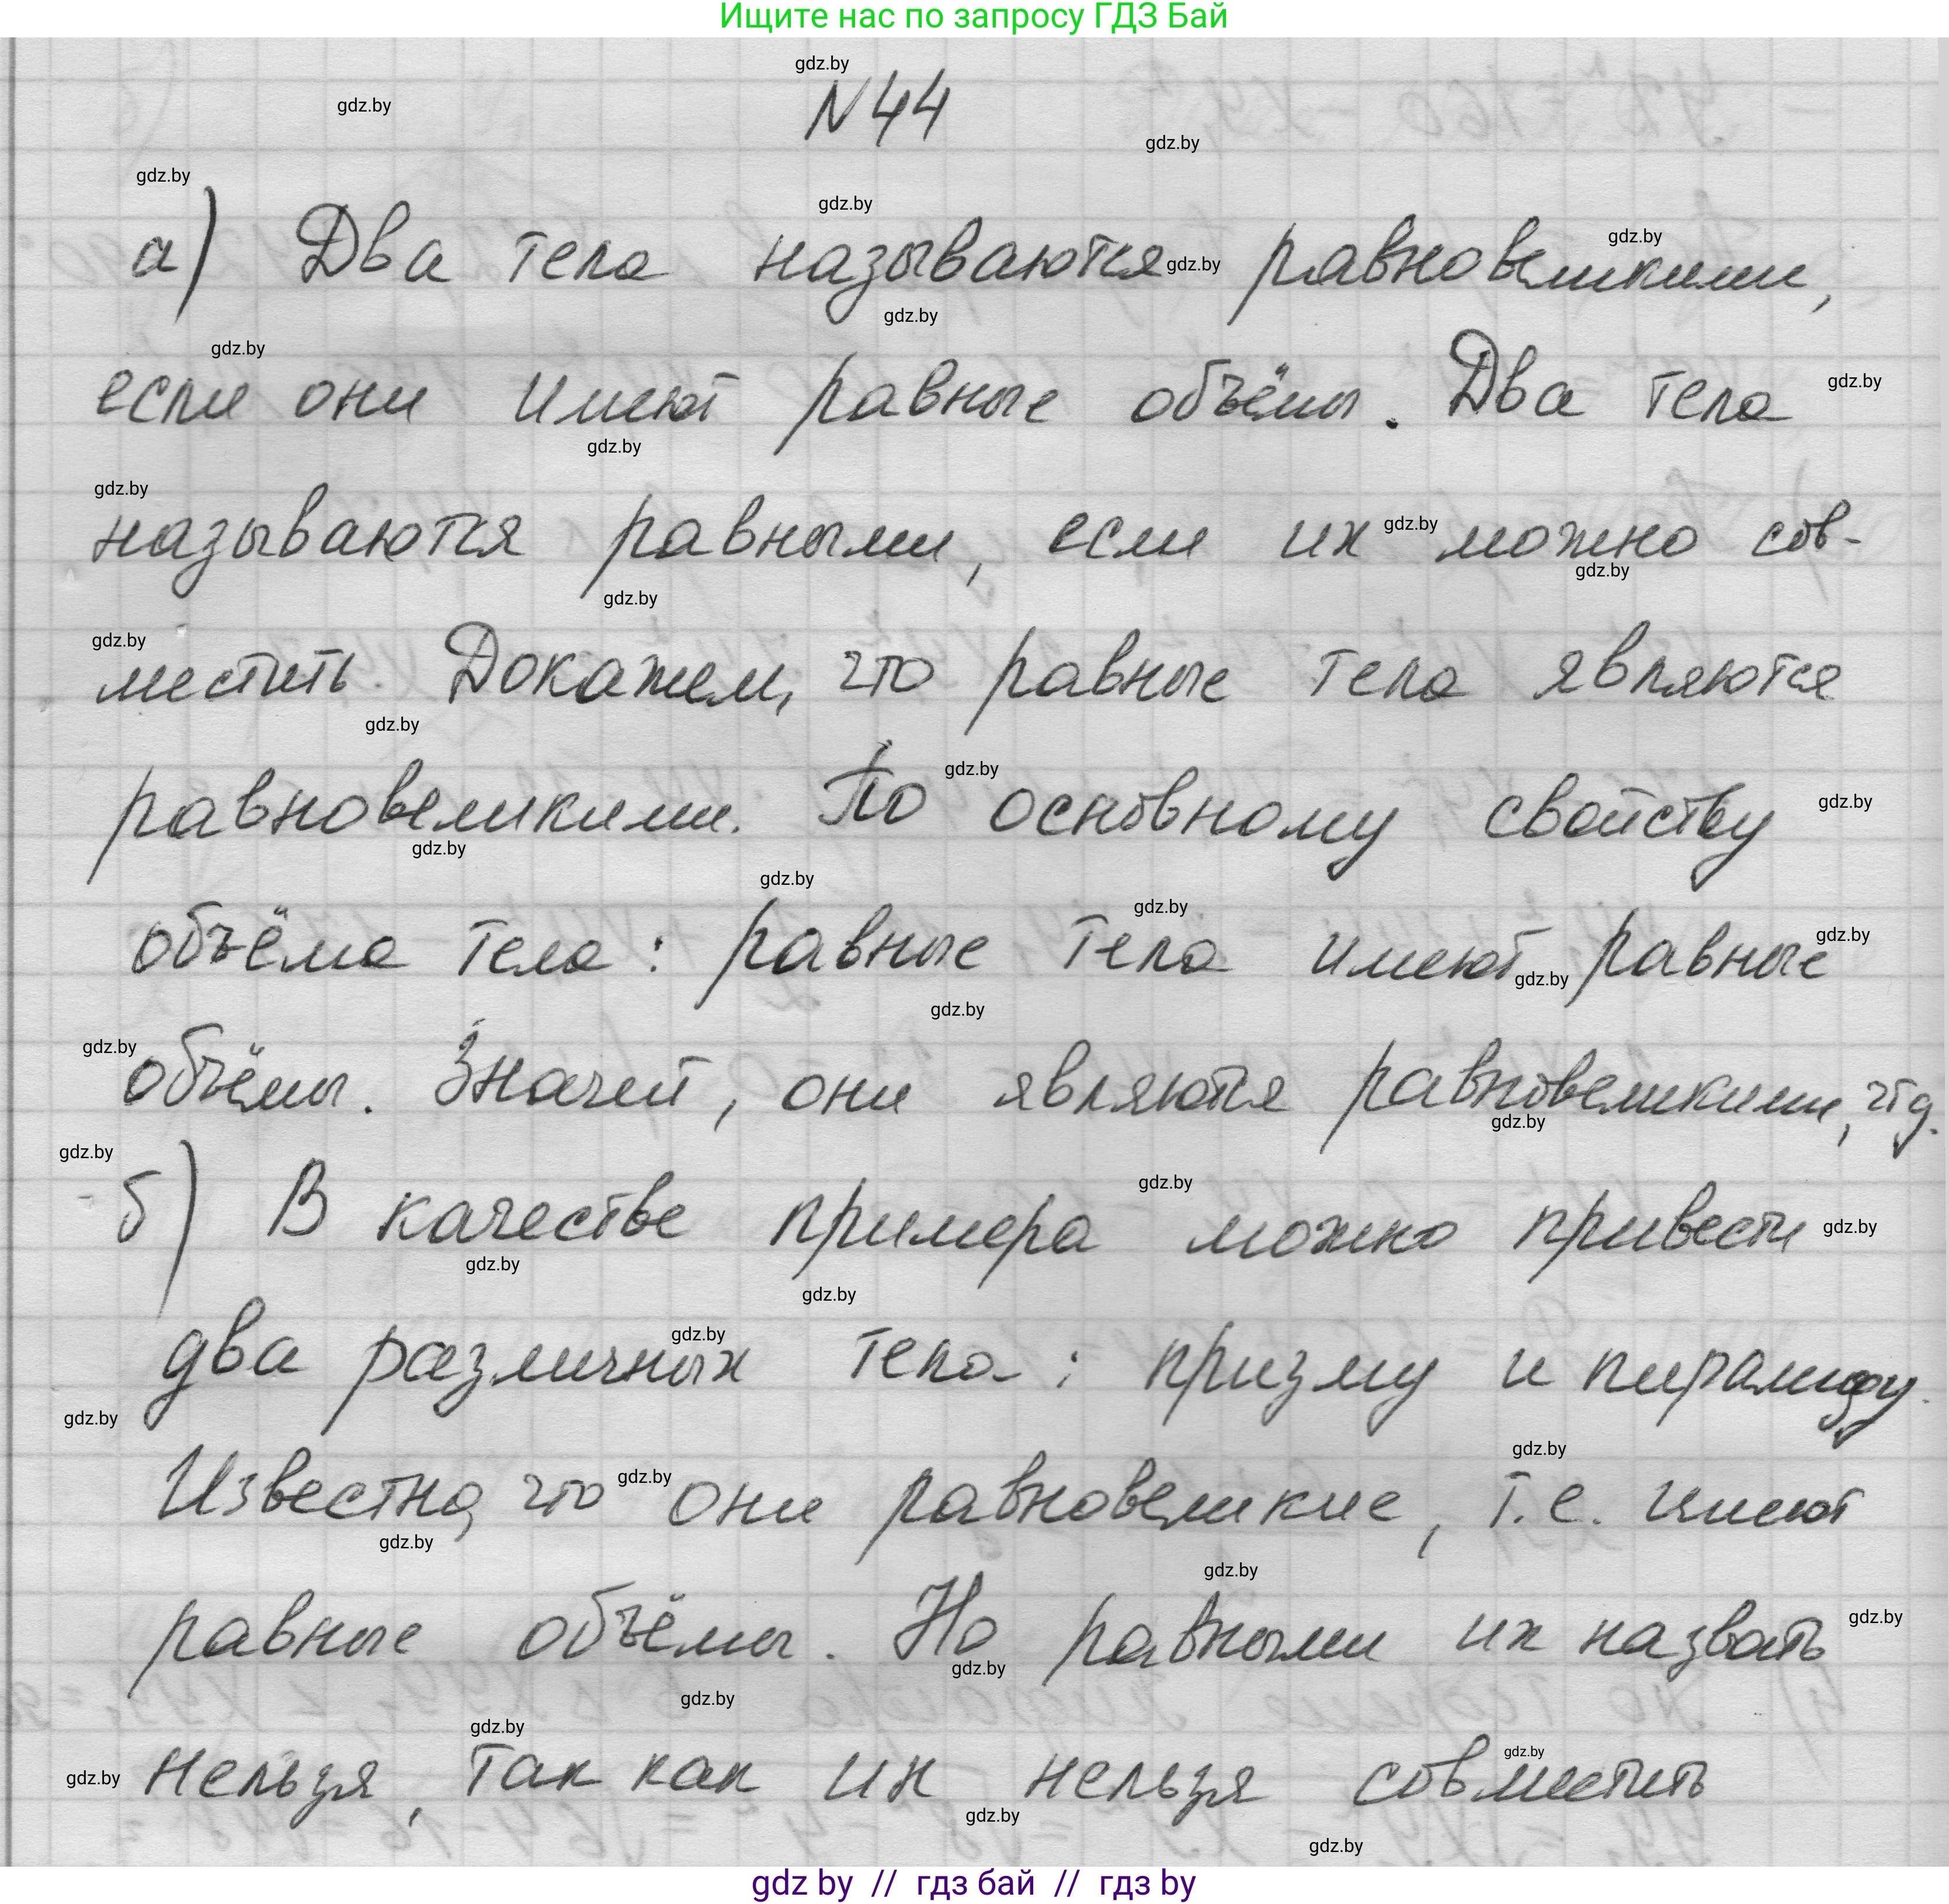 Ищите нас по запросу ГДЗ Бай
N44
а) Два тела называются равновеликими,
если они имеют равные объёмы. Два тела
называются равными, если их можно сов-
местить. Докажем, что равные тела являются
равновеликими. По основному свойству
объёма тела: равные тела имеют равные
объёмы. Значит, они являются равновеликими, чтд.
б) В качестве примера можно привести
два различных тела: призму и пирамиду.
Известно, что они равновеликие, т.е. имеют
равные объёмы. Но равными их назвать
нельзя, так как их нельзя совместить
gdz by // гдз бай // гдз by